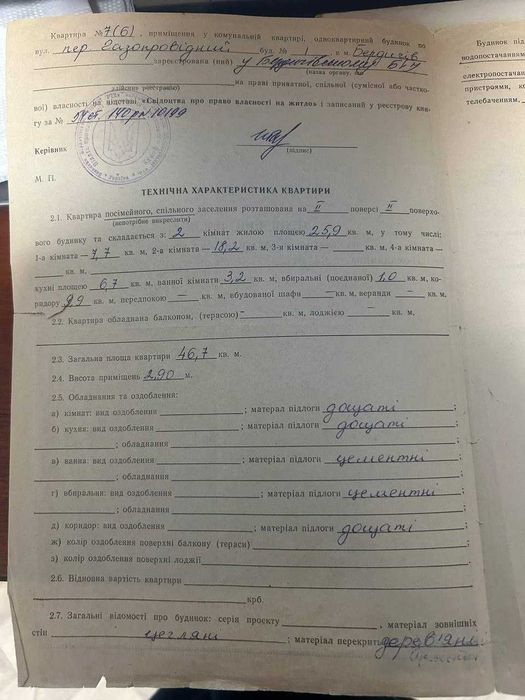 Квартира № 7(6), приміщення у комунальній квартирі, одноквартирний будинок по
вул. пер Газопровідний буд. № 1 в м. Бердичів
зареєстрована (ний) у Бердичівському БТІ
(назва органу,
на праві приватної, спільної (сумісної або частко-
вої) власності на підставі «Свідоцтва про право власності на житло» і записаний у реєстрову кни-
гу за №
Керівник
(підпис)
М. П.
ТЕХНІЧНА ХАРАКТЕРИСТИКА КВАРТИРИ
2.1. Квартира посімейного, спільного заселення розташована на II поверсі II поверхо-
(непотрібне викреслити)
вого будинку та складається з: 2 кімнат жилою площею 25,9 кв. м, у тому числі:
1-а кімната — 7,7 кв. м, 2-а кімната — 18,2 кв. м, 3-я кімната — кв. м, 4-а кімната —
кв. м,
кухні площею 6,7 кв. м, ванної кімнати 3,2 кв. м, вбиральні (поєднаної) 1,0 кв. м, ко-
ридору 9,9 кв. м, передпокою — кв. м, вбудованої шафи — кв. м, веранди — кв. м,
2.2. Квартира обладнана балконом, (терасою) - кв. м, лоджією — кв. м,
2.3. Загальна площа квартири 46,7 кв. м.
2.4. Висота приміщень 2,90 м.
2.5. Обладнання та оздоблення:
а) кімнат: вид оздоблення ; матерал підлоги дощаті ;
б) кухня: вид оздоблення ; матеріал підлоги дощаті ;
; обладнання
в) ванна: вид оздоблення ; матеріал підлоги цементні ;
; обладнання
г) вбиральня: вид оздоблення ; матеріал підлоги цементні ;
; обладнання
д) коридор: вид оздоблення ; матеріал підлоги дощаті ;
ж) колір оздоблення поверхні балкону (тераси) ;
з) колір оздоблення поверхні лоджії .
2.6. Відновна вартість квартири
крб.
2.7. Загальні відомості про будинок: серія проекту , матеріал зовнішніх
стін цегляні ; матеріал перекрить дерев'яні
Будинок під
водопостачанням
електропостачан
пристроями, ко
телебаченням,